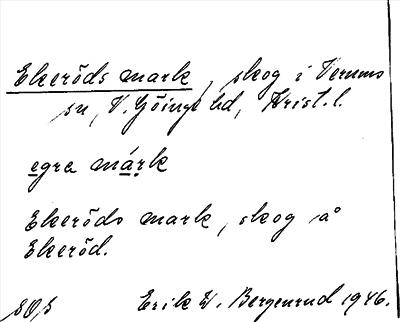 Ekeröds mark, skog i Verums
sn, V. Göinge hd, Krist. l.
egrə márk
Ekeröds mark, skog på
Ekeröd.
Erik W. Bergenrud 1946.